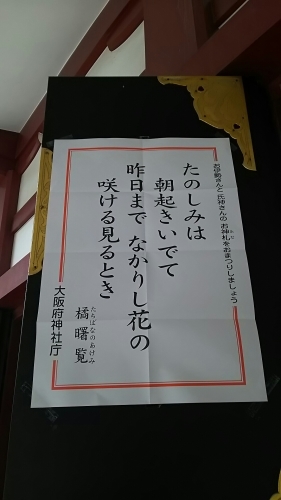 お伊勢さんと氏神さんのお神札をおまつりしましょう
ふだ
たのしみは
朝起きいでて
昨日まで なかりし花の
咲ける見るとき
たちばなのあけみ
橘 曙 覧
大阪府神社庁